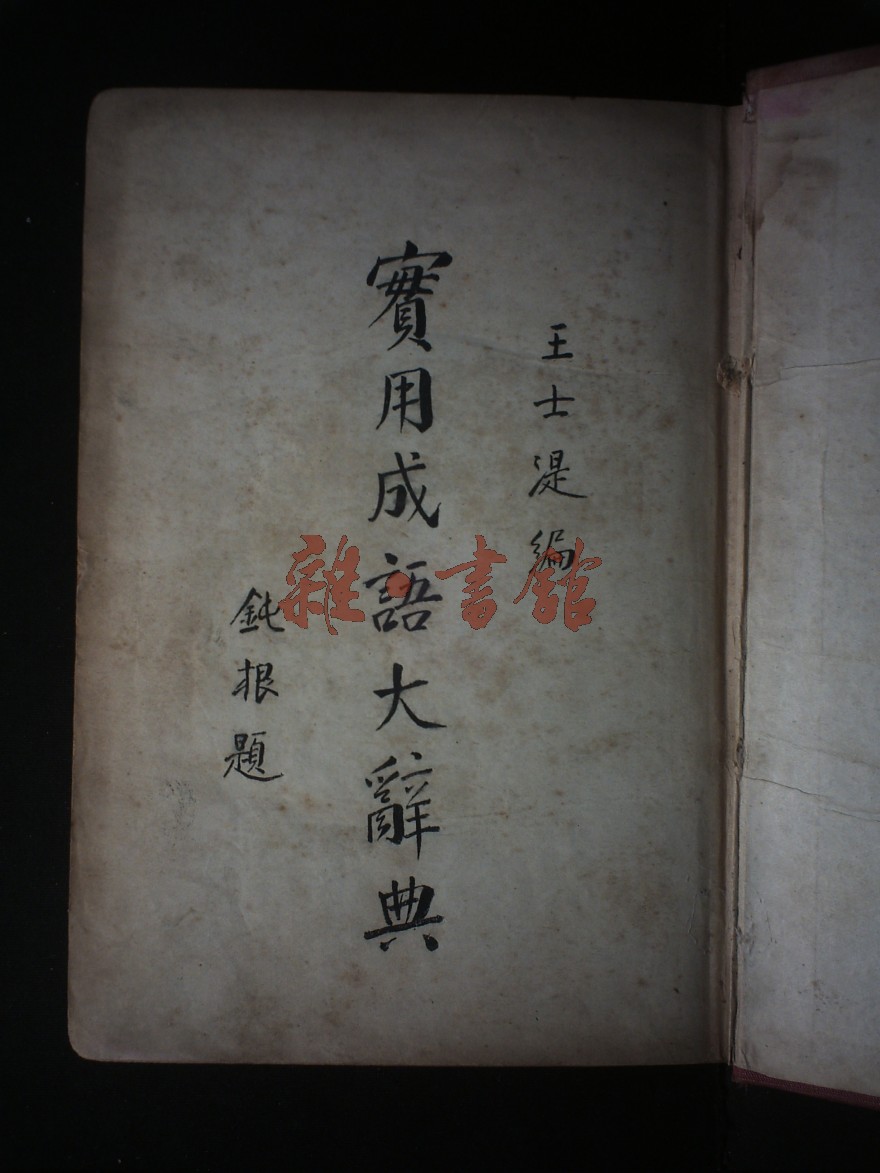 王士湜編
實用成語大辭典
鈍根題
雜·書館